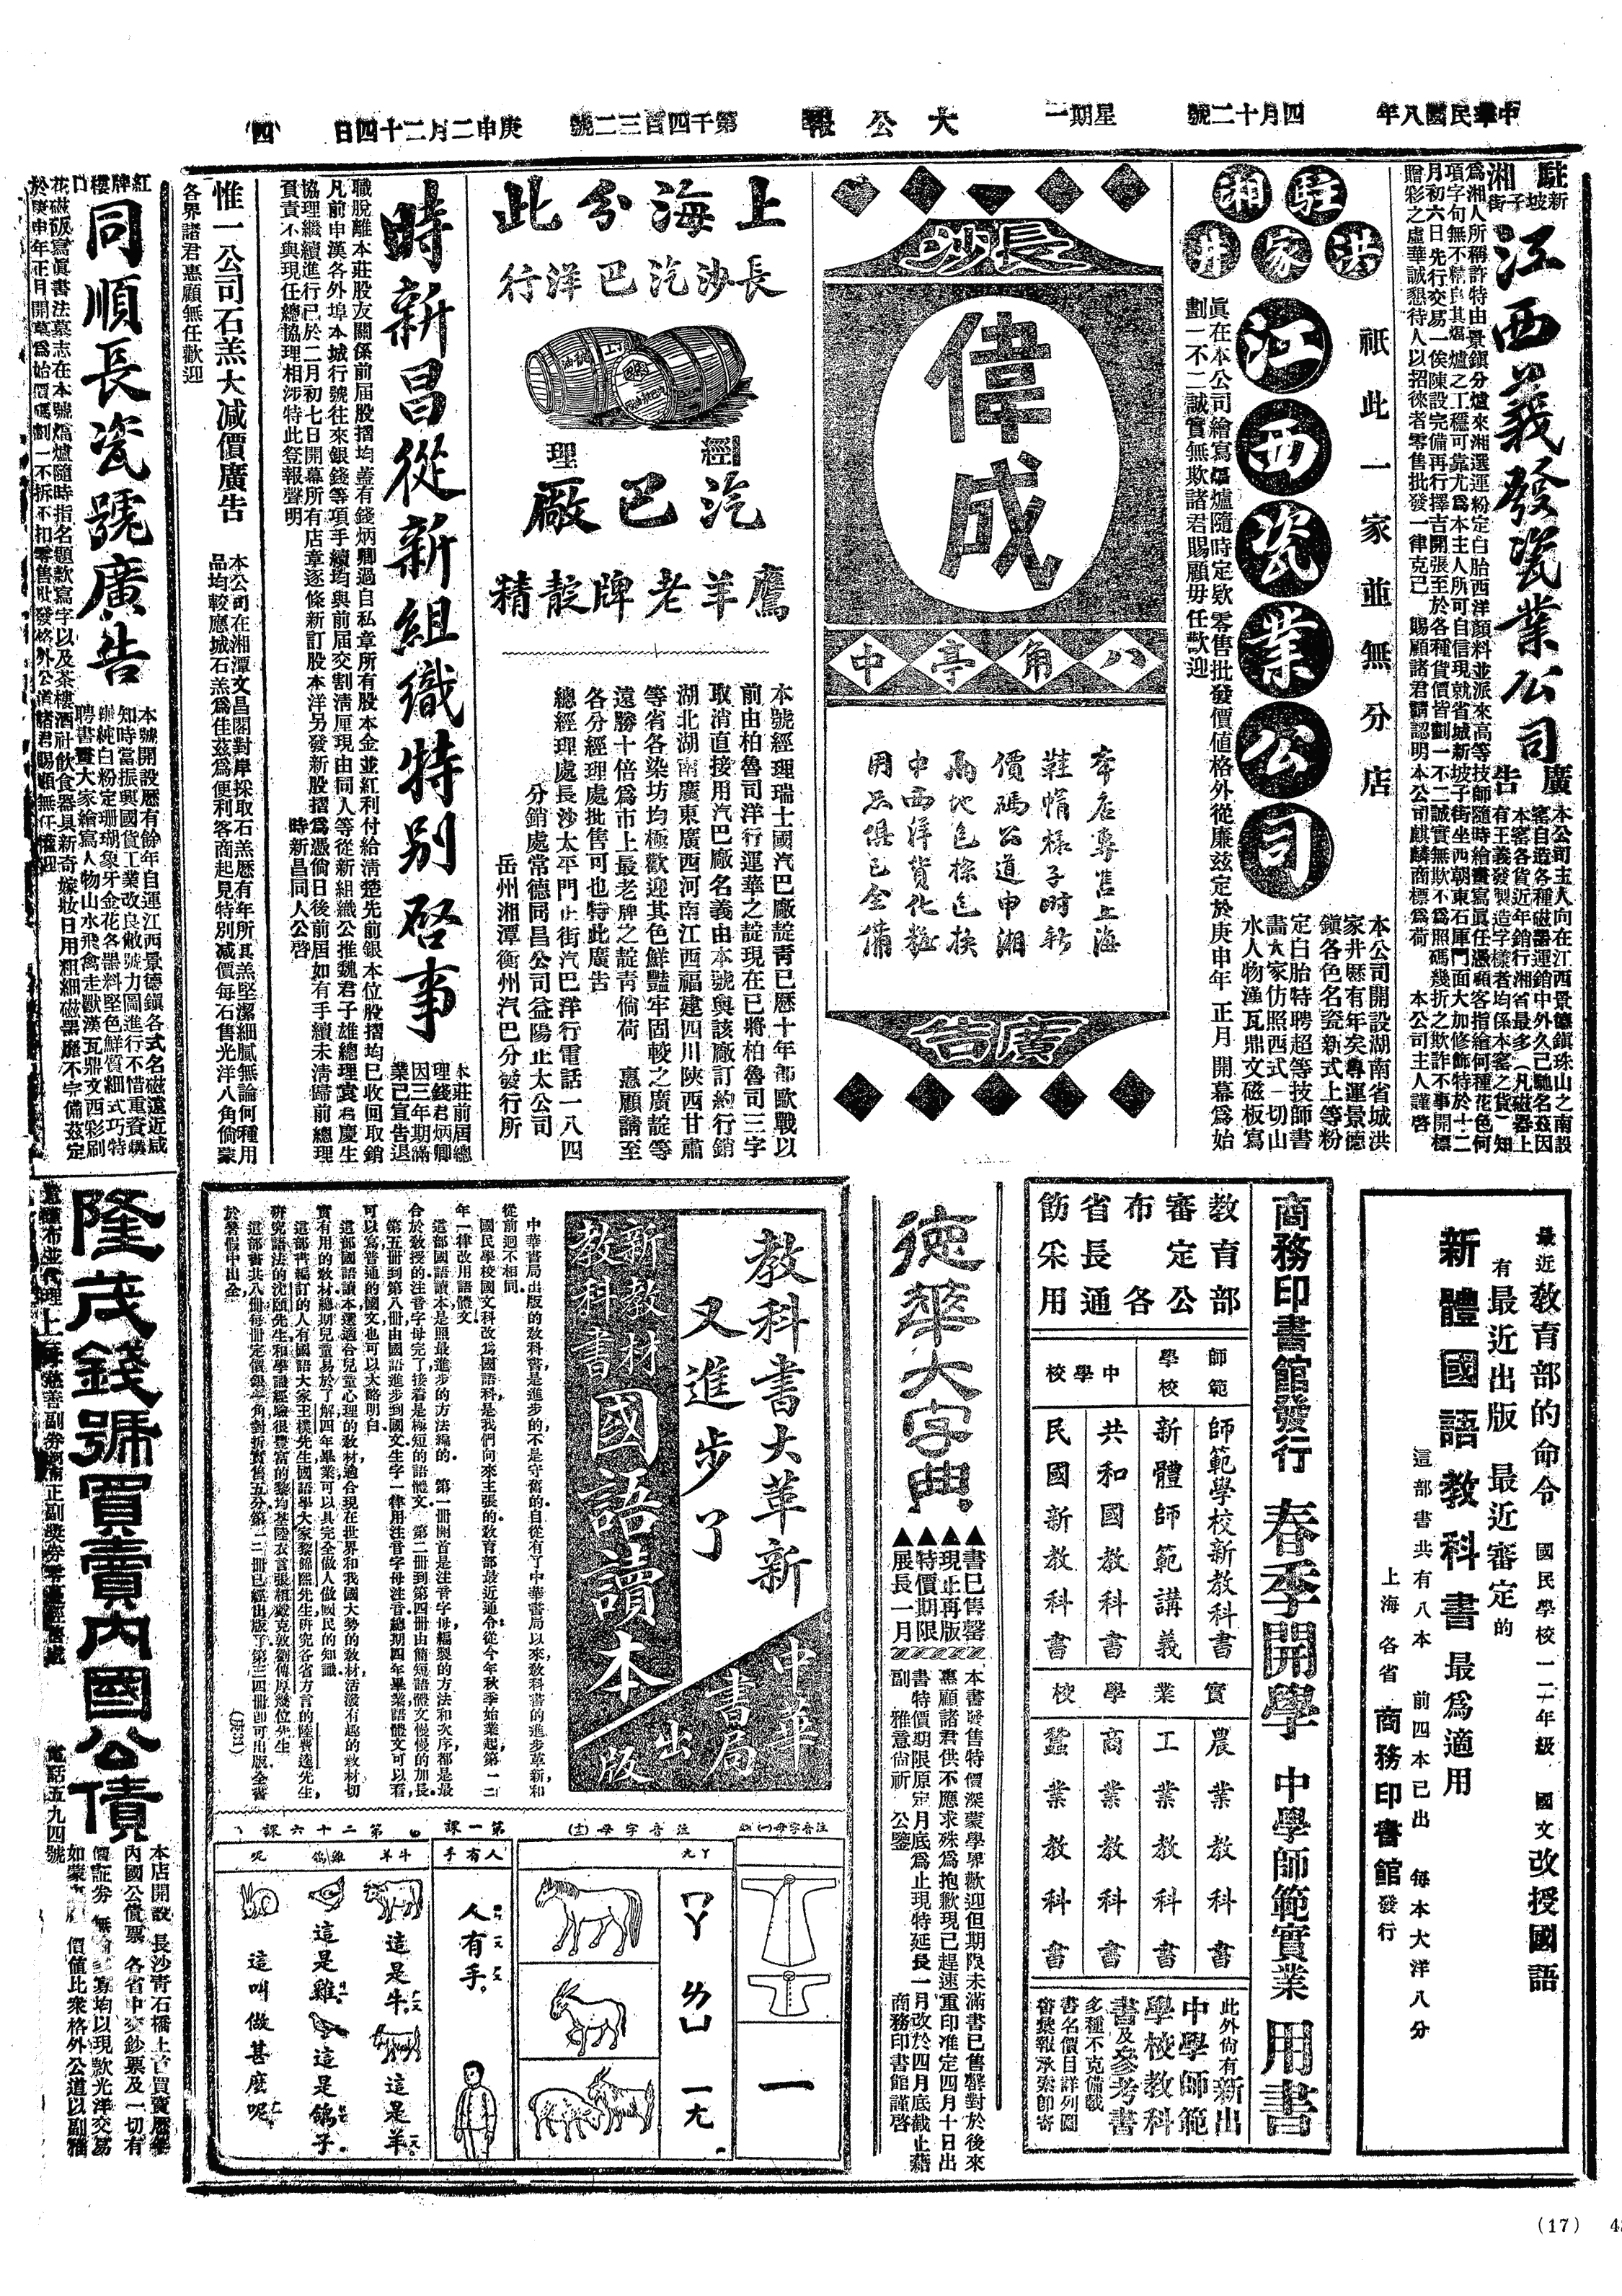 中華民國八年
四月十二號
星期一
大公報
第千四百三二號
庚申二月二十四日
(四)
駐湘新坡子街
江西義發瓷業公司
廣告
本公司主人向在江西景德鎮珠山之南設
窰自造各種磁器運銷中外久已馳名茲因
本窰各貨近年銷行湘省最多(凡磁器上
有王義發製造字樣者均係本窰之貨)知
為湘人所稱許特由景鎮分爐來湘選運粉定白胎西洋顏料並派來高等技師隨時繪畫寫眞任憑顧客指繪何種花色何
贈彩之虛華誠懇待人以招徠者零售批發一律克己 賜顧諸君請認明本公司麒麟商標為荷 本公司主人謹啓
駐湘
洪家井
江西瓷業公司
祇此一家並無分店
本公司開設湖南省城洪
家井歷有年矣專運景德
鎮各色名瓷新式上等粉
定白胎特聘超等技師書
畫大家仿照西式一切山
水人物漢瓦鼎文磁板寫
眞在本公司繪寫爐隨時定欵零售批發價值格外從廉茲定於庚申年正月開幕為始
劃一不二誠實無欺諸君賜顧毋任歡迎
長沙
偉成
八角亭中
本店專售上海
鞋帽樣子時新
價碼公道申湘
兩地包樣包換
中西洋貨化粧
用品俱已全備
廣告
上海分此
長沙汽巴洋行
經理
汽巴廠
鷹羊老牌靛精
本號經理瑞士國汽巴廠靛靑已歷十年都歐戰以
前由柏魯司洋行運華之靛現在已將柏魯司三字
取消直接用汽巴廠名義由本號與該廠訂約行銷
湖北湖南廣東廣西河南江西福建四川陝西甘肅
等省各染坊均極歡迎其色鮮豔牢固較之廣靛等
遠勝十倍為市上最老牌之靛青倘荷 惠顧請至
各分經理處批售可也特此廣告
總經理處長沙太平門正街汽巴洋行電話一八四
分銷處常德同昌公司益陽止太公司
岳州湘潭衡州汽巴分發行所
時新昌從新組織特別啓事
本莊前屆總
理錢君炳卿
因三年期滿
業已宣告退
職脫離本莊股友關係前屆股摺均蓋有錢炳卿過自私章所有股本金並紅利付給淸楚先前銀本位股摺均已收回取銷
凡前申漢各外埠本城行號往來銀錢等項手續均與前屆交割淸厘現由同人等從新組織公推魏君子雄總理袁君慶生
協理繼續進行已於二月初七日開幕所有店章逐條新訂股本洋另發新股摺為憑倘日後前屆如有手續未淸歸前總理
負責不與現任總協理相涉特此登報聲明
時新昌同人公啓
惟一公司石羔大減價廣告
本公司在湘潭文昌閣對岸採取石羔歷有年所其羔堅潔細膩無論何種用
品均較應城石羔為佳茲為便利客商起見特別減價每石售光洋八角倘蒙
各界諸君惠顧無任歡迎
紅牌樓口
同順長瓷號廣告
本號開設歷有餘年自運江西景德鎮各式名磁遠近咸
知時當振興國貨工業改良敝號力圖進行不惜重資購
辦純白粉定珊瑚象牙金花各器料堅色鮮質細式巧特
聘書畫大家繪寫人物山水飛禽走獸漢瓦鼎文西彩刷
花磁版寫眞書法墓志在本號熇爐隨時指名題款寫字以及茶樓酒社飲食器具新奇嫁妝日用粗細磁器靡不完備茲定
於庚申年正月開幕為始價碼劃一不折不扣零售批發格外公道諸君賜顧無任歡迎
最近敎育部的命令 國民學校一二年級 國文改授國語
有最近出版 最近審定的
新體國語教科書最為適用
這部書共有八本 前四本已出 每本大洋八分
上海各省商務印書館發行
商務印書館發行 春季開學 中學師範實業 用書
教育部審定公布各省長通飭采用
師範學校
中學校
師範學校新教科書
新體師範講義
共和國教科書
民國新教科書
實業學校
農業教科書
工業教科書
商業教科書
蠶業教科書
此外尚有新出
中學師範
學校教科
書及參考書
多種不克備載
書名價目詳列圖
書彙報承索即寄
德華大字典
▲書已售罄
▲現止再版
▲特價期限
▲展長一月
本書發售特價深蒙學界歡迎但期限未滿書已售罄對於後來
惠顧諸君供不應求殊為抱歉現已趕速重印准定四月十日出
書特價期限原定月底為止現特延長一月改於四月底截止藉
副 雅意尚祈 公鑒 商務印書館謹啓
教科書大革新
又進步了
中華書局出版
新教材教科書
國語讀本
中華書局出版的敎科書是進步的,不是守舊的,自從有了中華書局以來,敎科書的進步革新,和
從前迥不相同.
國民學校國文科改爲國語科,是我們向來主張的.敎育部最近通令,從今年秋季始業起,第一二
年一律改用語體文.
這部國語讀本是照最進步的方法編的. 第一冊開首是注音字母,編製的方法和次序,都是最
合於敎授的.注音字母完了,接着是極短的語體文. 第二冊到第四冊,由簡短語體文慢慢的加長.
第五冊到第八冊由國語進步到國文,生字一律用注音字母注音,總期四年畢業,語體文可以看
可以寫,普通的國文也可以大略明白.
這部國語讀本選適合兒童心理的敎材,適合現在世界和我國大勢的敎材,活潑有趣的敎材,切
實有用的敎材,總期兒童易於了解.四年畢業可以具完全做人做國民的知識.
這部書編訂的人,有國語大家王璞先生,國語學大家黎錦熙先生,研究各省方言的陸費逵先生,
研究語法的沈頤先生,和學識經驗很豐富的黎均荃陸衣言張相戴克敦劉傳厚幾位先生
這部書共八冊,每冊定價銀一角,對折實售五分,第一二冊已經出版了,第三四冊卽可出版,全書
於暑假中出全.
注音字母(一)
一
注音字母(十三)
丫尤
ㄇㄚ
ㄌㄩ
一ㄤ
第一課
人有手
人有手.
第二十六課
牛羊
雞鴿
呢
這是牛.
這是羊.
這是雞.
這是鴿子.
這叫做甚麽呢
隆茂錢號買賣內國公債
本店開設長沙靑石橋上首買賣歷年
內國公債票 各省中交鈔票及一切有
價証券 無論多寡均以現欵光洋交易
價值比衆格外公道以副雅
電話五九四號
(17)